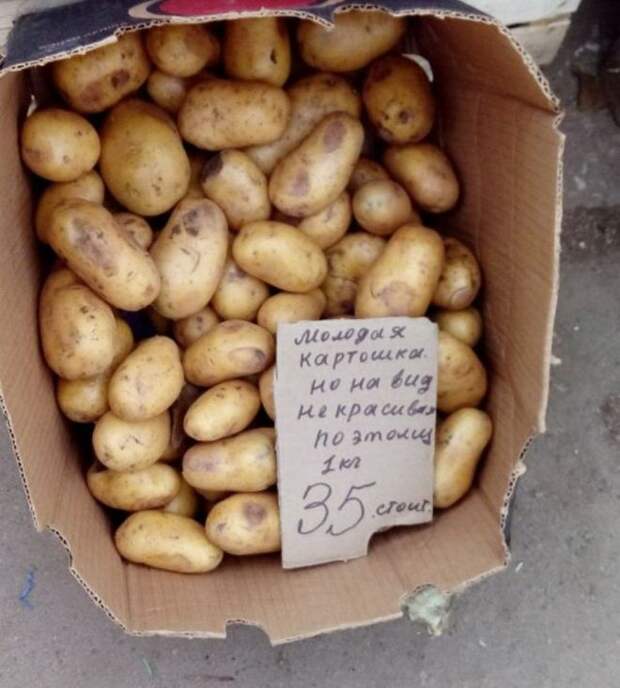 молодая
картошка.
но на вид
не красивая
поэтому
1 кг
35 стоит.